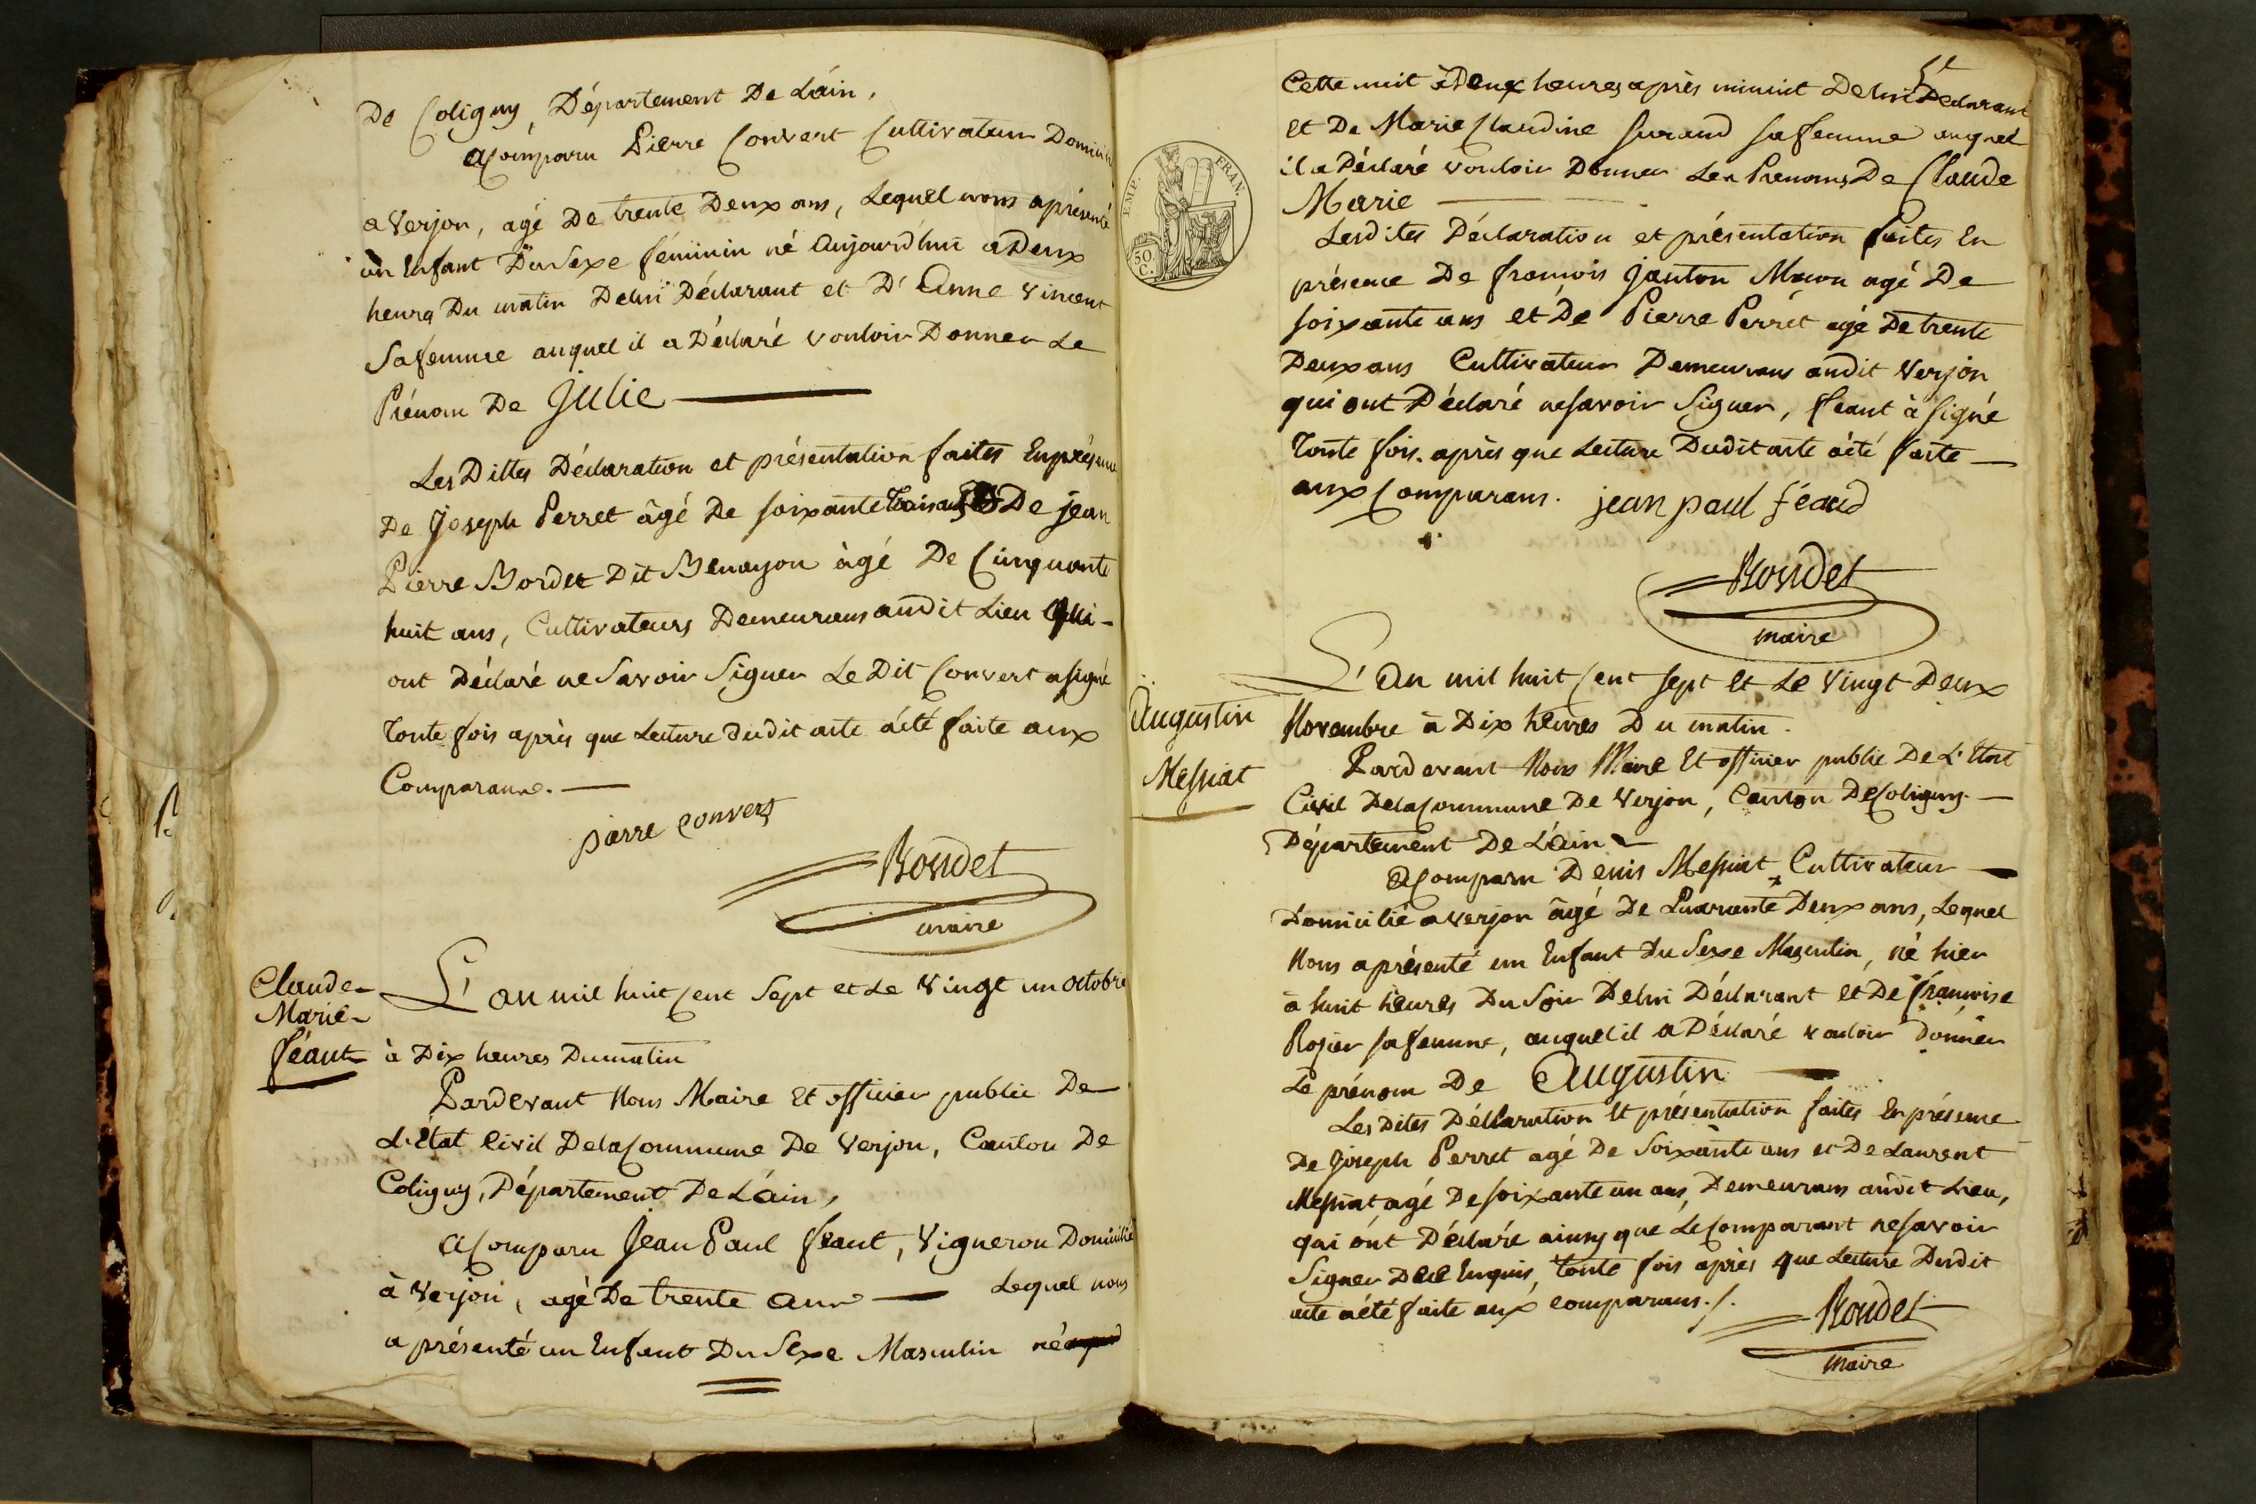 De Coligny, Département De L'ain,
a Comparu Pierre Convert Cultivateur Domicilié
a Verjon, agé De trente Deux ans, Lequel nous a présenté
un Enfant Du Sexe féminin né Aujourd'hui a Deux
heures Du matin De lui Déclarant et D'Anne Vincent
Sa femme auquel il a Déclaré vouloir Donner Le
Prénom De Julie
Les Dittes Déclaration et présentation faites En présence
De Joseph Perret âgé De soixante trois ans De jean
Pierre Bordet Dit Benayon àgé De Cinquante
huit ans, Cultivateurs Demeurans audit Lieu Qui
ont Déclaré ne Savoir Signer Le Dit Convert a signé
toute fois après que Lecture dudit acte á été faite aux
Comparans.
pierre convert
Rondet
maire
Claude
Marie
féaut
L'an mil huit Cent Sept et Le Vingt un octobre
à Dix heures Du matin
Pardevant Nous Maire Et officier public De
L'état Civil De la Commune De Verjon, Canton De
Coligny, Département De L'ain,
a Comparu Jean Paul feaut, Vigneron Domicilié
à Verjon, agé De trente Ans Lequel nous
a présenté un Enfant Du Sexe Masculin né
Cette nuit à Deux heures après minuit De lui Déclarant
Et De Marie Claudine Surand sa femme auquel
il a Déclaré vouloir Donner Les Prenoms De Claude
Marie
Lesdites Déclaration et présentation faites En
présence De françois Janton Macon agé De
soixante ans et De Pierre Perrét agé De trente
Deux ans Cultivateur Demeurans audit Verjon
qui ont Déclaré ne savoir Signer, feaut à signé
toute fois après que Lecture Dudit acte a été faite
aux Comparans. jean paul féaud
Rondet
maire
EMP. FRAN.
50 C.
Augustin
Messiat
L'An mil huit Cent sept Et Le Vingt Deux
Novembre à Dix heures Du matin.
Pardevant Nous Maire Et officier public De L'Etat
Civil De la Commune De Verjon, Canton De Coligny
Département De L'ain
a Comparu Denis Messiat Cultivateur
Domicilié a Verjon âgé De Quarante Deux ans, Lequel
Nous a présenté un Enfant Du Sexe Masculin, né hier
à huit heures Du Soir De lui Déclarant et De françoise
Rosier sa femme, auquel il a Déclaré vouloir Donner
Le prénom De Augustin
Les Dites Déclaration Et présentation faites En présence
De Joseph Perret agé De Soixante ans et De Laurent
Messiat agé De soixante un ans, Demeurans audit Lieu,
qui ont Déclaré ainsy que Le Comparant ne savoir
Signer De ce Enquis, toute fois après que Lecture Dudit
acte a été faite aux comparans./.
Rondet
maire